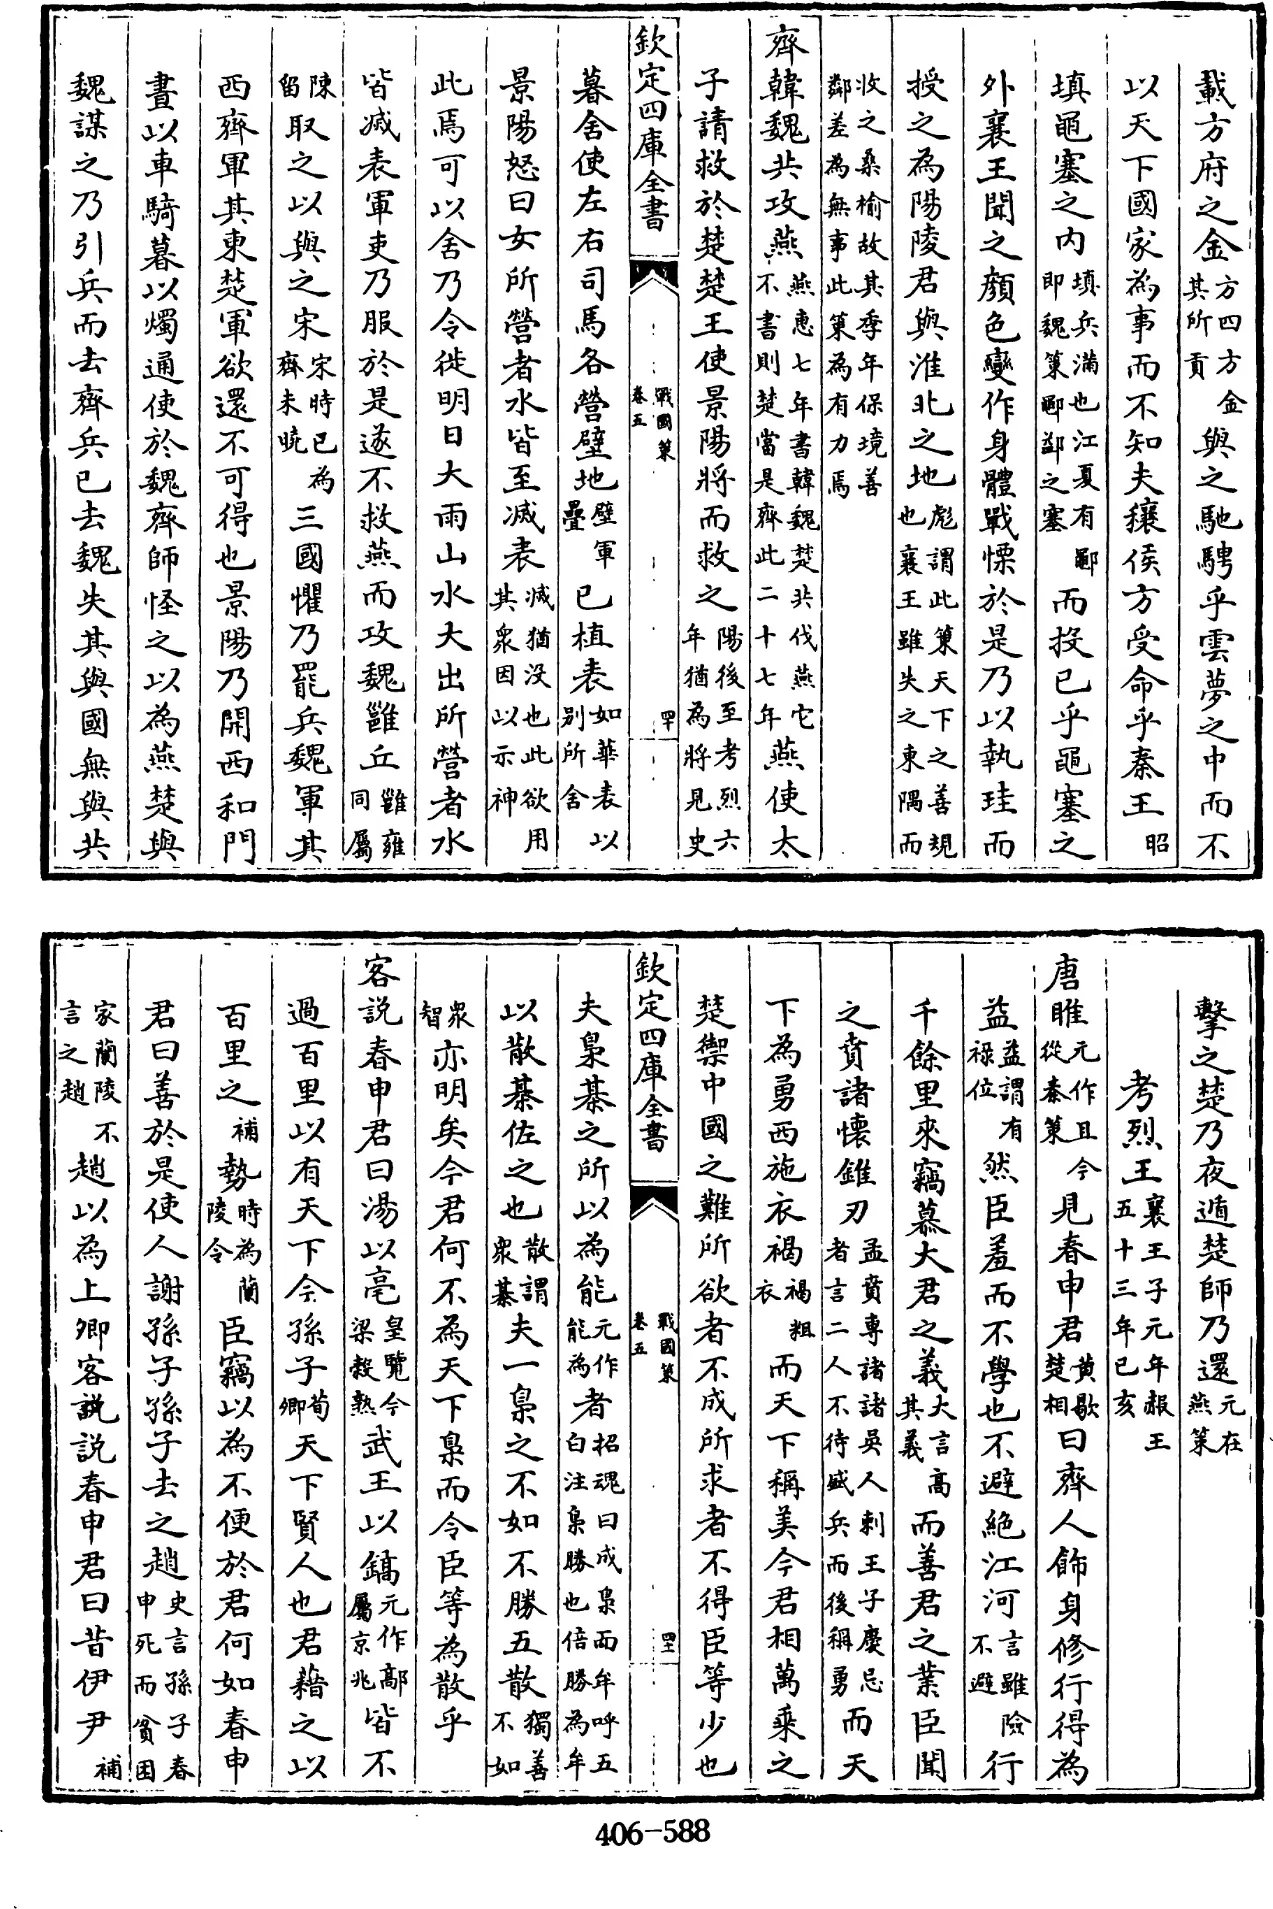 載方府之金方四方金其所貢與之馳騁乎雲夢之中而不
以天下國家為事而不知夫穰侯方受命乎秦王昭
填黽塞之内填兵滿也江夏有鄳即魏策鄳䣕之塞而投已乎黽塞之
外襄王聞之顔色變作身體戰慄於是乃以執珪而
授之為陽陵君與淮北之地彪謂此策天下之善規也襄王雖失之東隅而
收之桑榆故其季年保境善鄰差為無事此策為有力焉
齊韓魏共攻燕燕惠七年書韓魏楚共伐燕它不書則楚當是齊此二十七年燕使太
子請救於楚楚王使景陽將而救之陽後至考烈六年猶為將見史
欽定四庫全書
戰國策
卷五
四十
暮舍使左右司馬各營壁地壁軍壘已植表如華表以别所舍
景陽怒曰女所營者水皆至滅表滅猶没也此欲用其衆因以示神
此焉可以舍乃令徙明日大雨山水大出所營者水
皆滅表軍吏乃服於是遂不救燕而攻魏雝丘雝雍同屬
陳留取之以與之宋宋時已為齊未曉三國懼乃罷兵魏軍其
西齊軍其東楚軍欲還不可得也景陽乃開西和門
晝以車騎暮以燭通使於魏齊師怪之以為燕楚與
魏謀之乃引兵而去齊兵已去魏失其與國無與共
擊之楚乃夜遁楚師乃還元在燕策
考烈王襄王子元年赧王五十三年已亥
唐睢元作且今從秦策見春申君黄歇楚相曰齊人飾身修行得為
益益謂有祿位然臣羞而不學也不避絶江河言雖險不避行
千餘里來竊慕大君之義大言高其義而善君之業臣聞
之賁諸懷錐刃孟賁專諸諸吳人刺王子慶忌者言二人不待盛兵而後稱勇而天
下為勇西施衣褐褐粗衣而天下稱美今君相萬乘之
楚禦中國之難所欲者不成所求者不得臣等少也
欽定四庫全書
戰國策
卷五
四十一
夫梟棊之所以為能元作能為者招魂曰成梟而牟呼五白注梟勝也倍勝為牟
以散棊佐之也散謂衆棊夫一梟之不如不勝五散獨善不如
衆智亦明矣今君何不為天下梟而令臣等為散乎
客説春申君曰湯以亳皇覽今梁穀熟武王以鎬元作鄗屬京兆皆不
過百里以有天下今孫子荀卿天下賢人也君藉之以
百里之補勢時為蘭陵令臣竊以為不便於君何如春申
君曰善於是使人謝孫子孫子去之趙史言孫子春申死而貧困
家蘭陵不言之趙趙以為上卿客説説春申君曰昔伊尹補
406-588